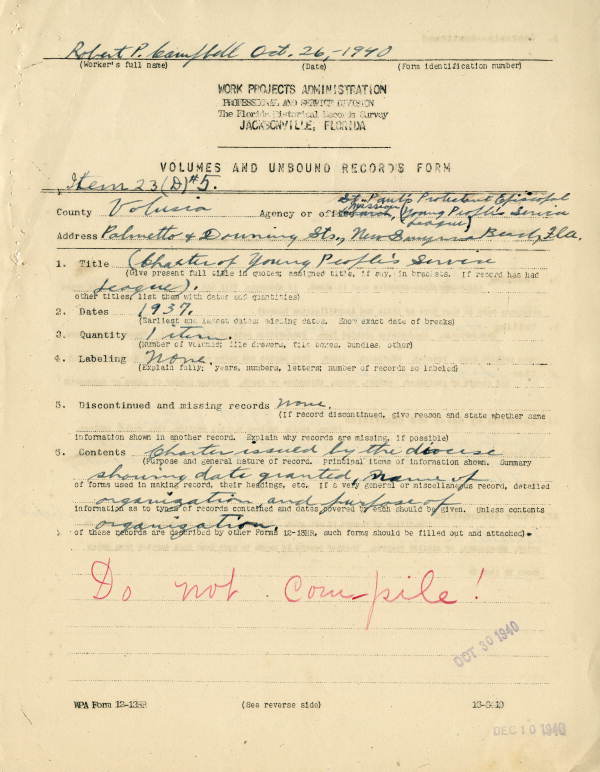 Robert P. Campbell Oct. 26,-1940
(Worker's full name) (Date) (Form identification number)
WORK PROJECTS ADMINISTRATION
PROFESSIONAL AND SERVICE DIVISION
The Florida Historical Records Survey
JACKSONVILLE, FLORIDA
VOLUMES AND UNBOUND RECORDS FORM
Item 23(D)#5.
St. Paul's Protestant Episcopal
County Volusia Agency or office Mission, (Young People's Service
League)
Address Palmetto & Downing Sts., New Smyrna Beach, Fla.
1. Title (Charter of Young People's Service
(Give present full title in quotes; assigned title, if any, in brackets. If record has had
League).
other titles, list them with dates and quantities)
2. Dates 1937.
(Earliest and latest dates; missing dates. Show exact date of breaks)
3. Quantity 1 item.
(Number of volumes; file drawers, file boxes, bundles, other)
4. Labeling None.
(Explain fully; years, numbers, letters; number of records so labeled)
5. Discontinued and missing records None.
(If record discontinued, give reason and state whether same
information shown in another record. Explain why records are missing, if possible)
6. Contents Charter issued by the diocese
(Purpose and general nature of record. Principal items of information shown. Summary
showing date granted, name of
of forms used in making record, their headings, etc. If a very general or miscellaneous record, detailed
organization and purpose of
information as to types of records contained and dates covered by each should be given. Unless contents
organization.
of these records are described by other Forms 12-13HR, such forms should be filled out and attached).
Do not compile!
OCT 30 1940
WPA Form 12-13HR (See reverse side)
DEC 10 1940